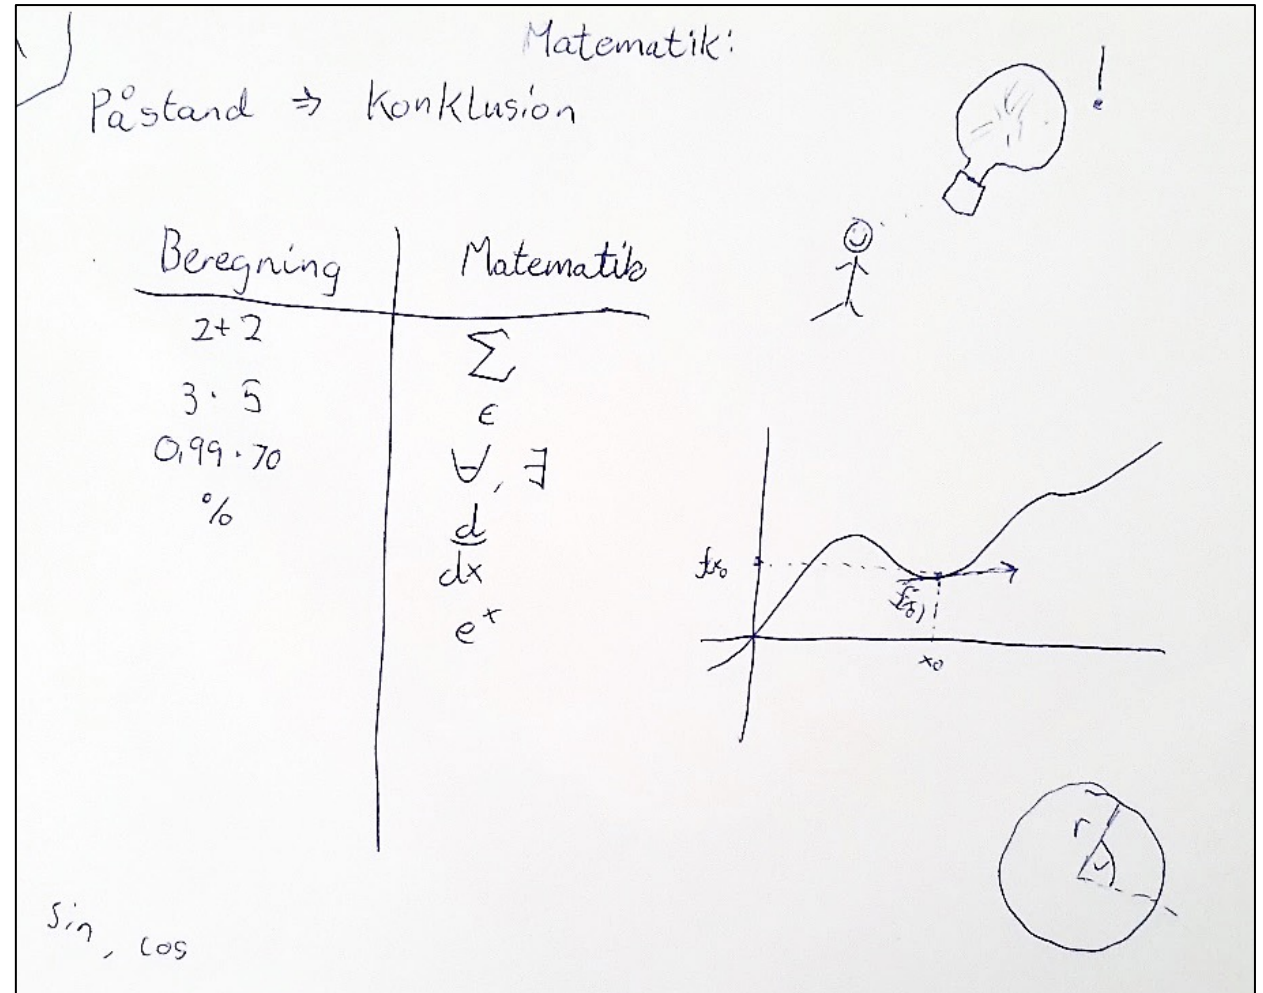 Matematik:
Påstand ⇒ Konklusion
!
Beregning Matematik
2+2 Σ
3 · 5 ϵ
0,99 · 70 ∀, ∃
% d
dx
e^x
fx₀
x₀
r
v
sin, cos